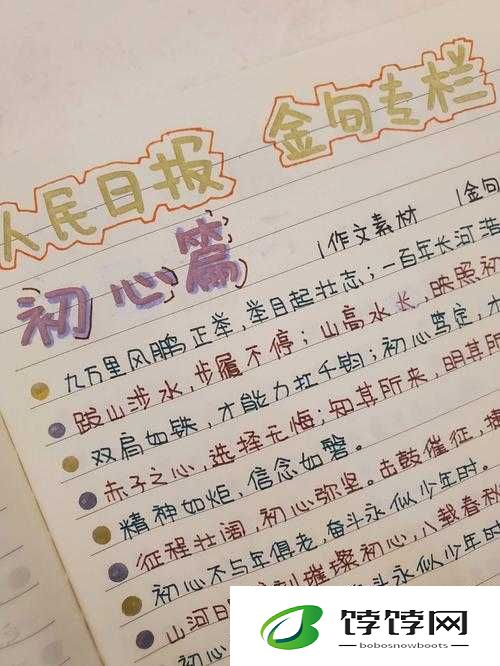 人民日报 金句专栏
初心篇
|作文素材 |金句
九万里风鹏正举,举目起壮志;一百年长河浩
跋山涉水,步履不停;山高水长,映照初
双肩如铁,才能力扛千钧;初心笃定,才
赤子之心,选择无悔;知其所来,明其所
精神如炬,信念如磐。
征程壮阔,初心弥坚。击鼓催征,
初心不与年俱老,奋斗永似少年时。
山河日 璀璨初心,八载春秋
初心 斗永似少年时
饽饽网
bobosnowboots